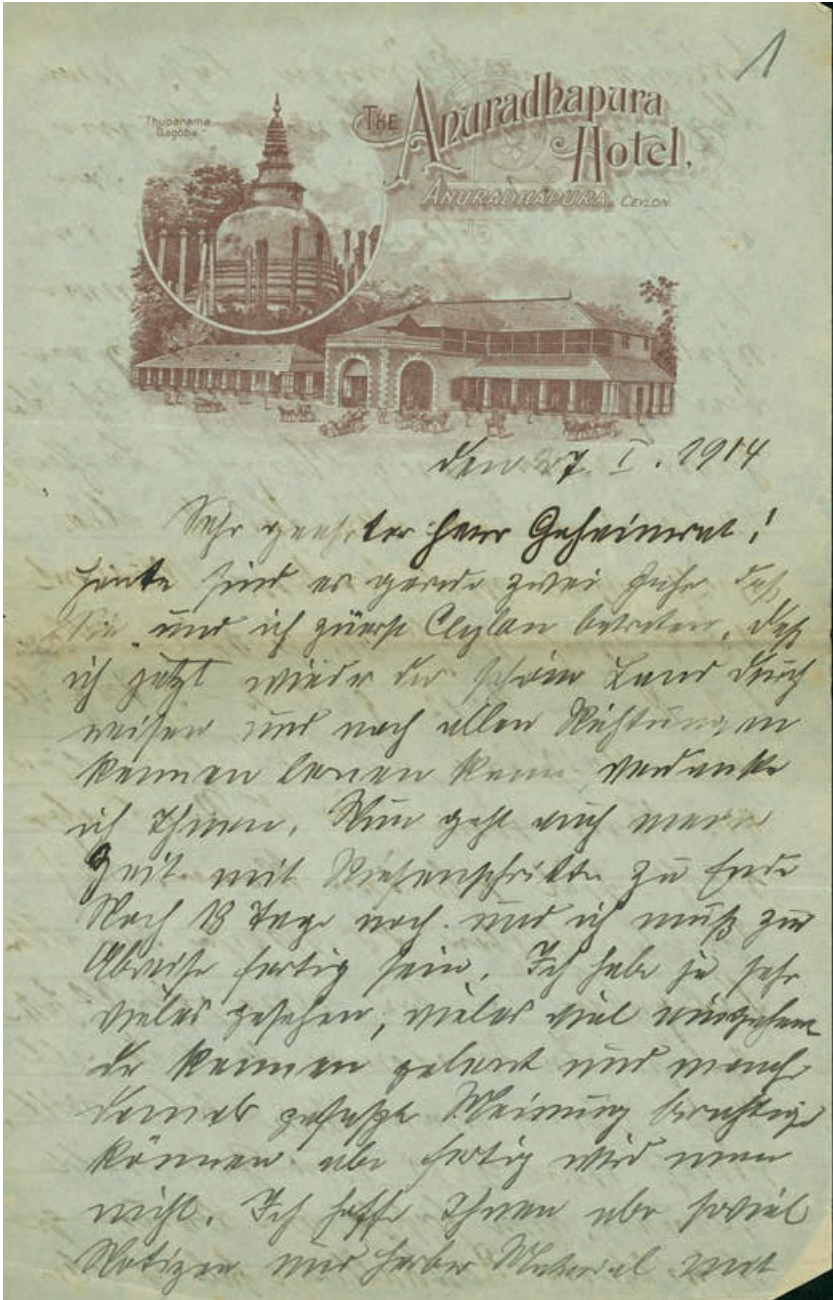 1
Thuparama
Dagoba
THE Anuradhapura
Hotel,
ANURADHAPURA, CEYLON.
den 27. I. 1914
Sehr geehrter Herr Geheimrat!
Heute sind es gerade zwei Jahr daß
Sie und ich zuerst Ceylon betreten, daß
ich jetzt wieder der schöne Land durch
reisen und nach allen Richtungen
kennen lernen kann verdanke
ich Ihnen. Nun geht auch meine
Zeit mit Riesenschritte zu Ende
Noch 18 Tage noch und ich muß zur
Abreise fertig sein. Ich habe ja sehr
vieles gesehen, vieles viel eingehen
der kennen gelernt und manch
damals gefaßte Meinung berichtige
können aber fertig wird man
nicht. Ich hoffe Ihnen aber soviel
Notizen und Herbar Material mit